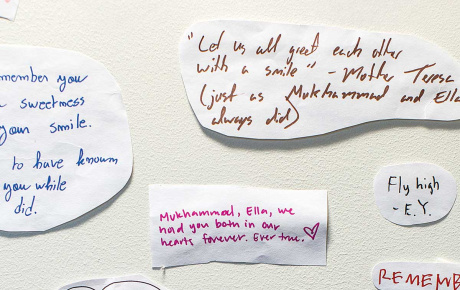 member you
sweetness
your smile.
to have known
you while
did.
"Let us all greet each other
with a smile" - Mother Teresa
(just as Mukhammad and Ella
always did)
Mukhammad, Ella, we
had you both in our
hearts forever. Ever true.
Fly high
- E.Y.
REMEMB